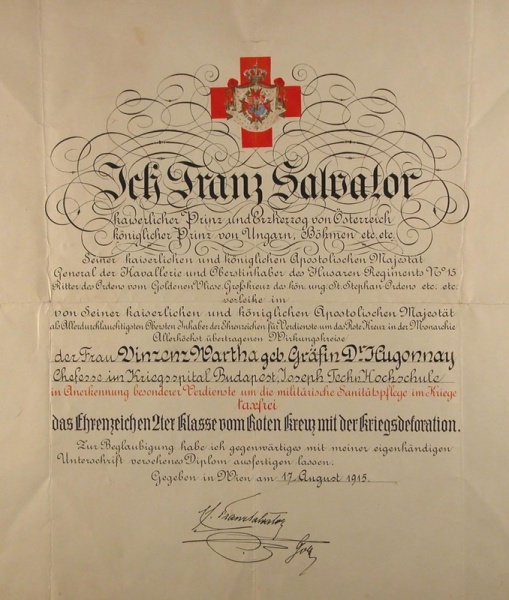 Ich Franz Salvator
kaiserlicher Prinz und Erzherzog von Österreich
königlicher Prinz von Ungarn, Böhmen etc. etc.
Seiner kaiserlichen und königlichen Apostolischen Majestät
General der Kavallerie und Oberstinhaber des Husaren Regiments No 15
Ritter des Ordens vom Goldenen Vliese, Großkreuz des kön. ung. St. Stephan Ordens etc. etc.
verleihe im
von Seiner kaiserlichen und königlichen Apostolischen Majestät
als Allerdurchlauchtigsten Obersten Inhaber des Ehrenzeichen für Verdienste um das Rote Kreuz in der Monarchie
Allerhöchst übertragenen Wirkungskreise
der Frau Vinzenz Wartha geb. Gräfin Dr. Hugonnay
Chefesse im Kriegsspital Budapest, Joseph Techn Hochschule
in Anerkennung besonderer Verdienste um die militärische Sanitätspflege im Kriege
taxfrei
das Ehrenzeichen 2ter Klasse vom Roten Kreuz mit der Kriegsdekoration.
Zur Beglaubigung habe ich gegenwärtiges mit meiner eigenhändigen
Unterschrift versehenes Diplom ausfertigen lassen.
Gegeben in Wien am 17. August 1915.
Franz Salvator